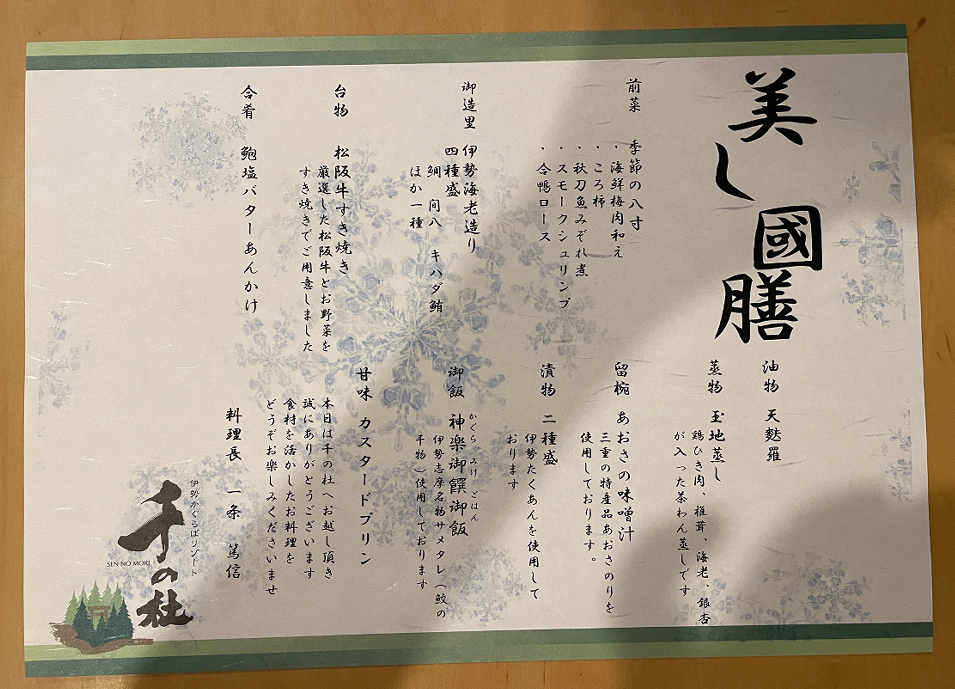 美し國膳
前菜 季節の八寸
・海鮮梅肉和え
・ころ柿
・秋刀魚みぞれ煮
・スモークシュリンプ
・合鴨ロース
御造里 伊勢海老造り
四種盛
鯛 間八 キハダ鮪
ほか一種
台物 松阪牛すき焼き
厳選した松阪牛とお野菜を
すき焼きでご用意しました
合肴 鮑塩バターあんかけ
油物 天麩羅
蒸物 玉地蒸し
鶏ひき肉、椎茸、海老、銀杏
が入った茶わん蒸しです
留椀 あおさの味噌汁
三重の特産品あおさのりを
使用しております。
漬物 二種盛
伊勢たくあんを使用して
おります
御飯 神楽御饌御飯
かぐら みけ ごはん
伊勢志摩名物サメタレ（鮫の
干物）使用しております
甘味 カスタードプリン
本日は千の杜へお越し頂き
誠にありがとうございます
食材を活かしたお料理を
どうぞお楽しみくださいませ
料理長 一条 篤信
伊勢かぐらばリゾート
千の杜
SEN NO MORI